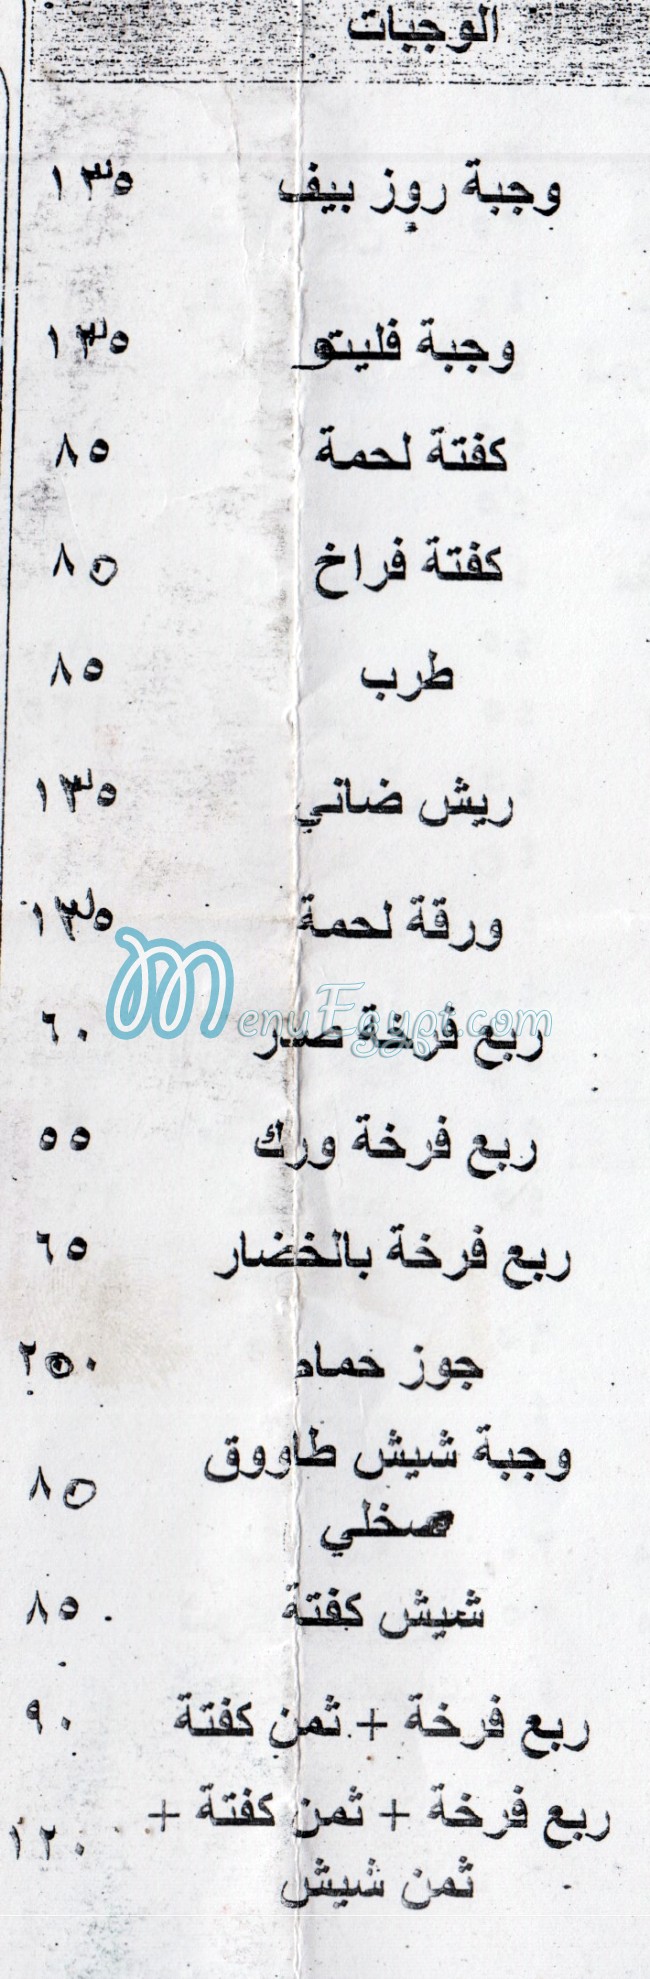 الوجبات
وجبة روز بيف ١٣٥
وجبة فليتو ١٣٥
كفتة لحمة ٨٥
كفتة فراخ ٨٥
طرب ٨٥
ريش ضاني ١٣٥
ورقة لحمة ١٣٥
MenuEgypt.com
ربع فرخة صدر ٦٠
ربع فرخة ورك ٥٥
ربع فرخة بالخضار ٦٥
جوز حمام ٢٥٠
وجبة شيش طاووق ٨٥
مخلي
شيش كفتة ٨٥
ربع فرخة + ثمن كفتة ٩٠
ربع فرخة + ثمن كفتة + ١٢٠
ثمن شيش